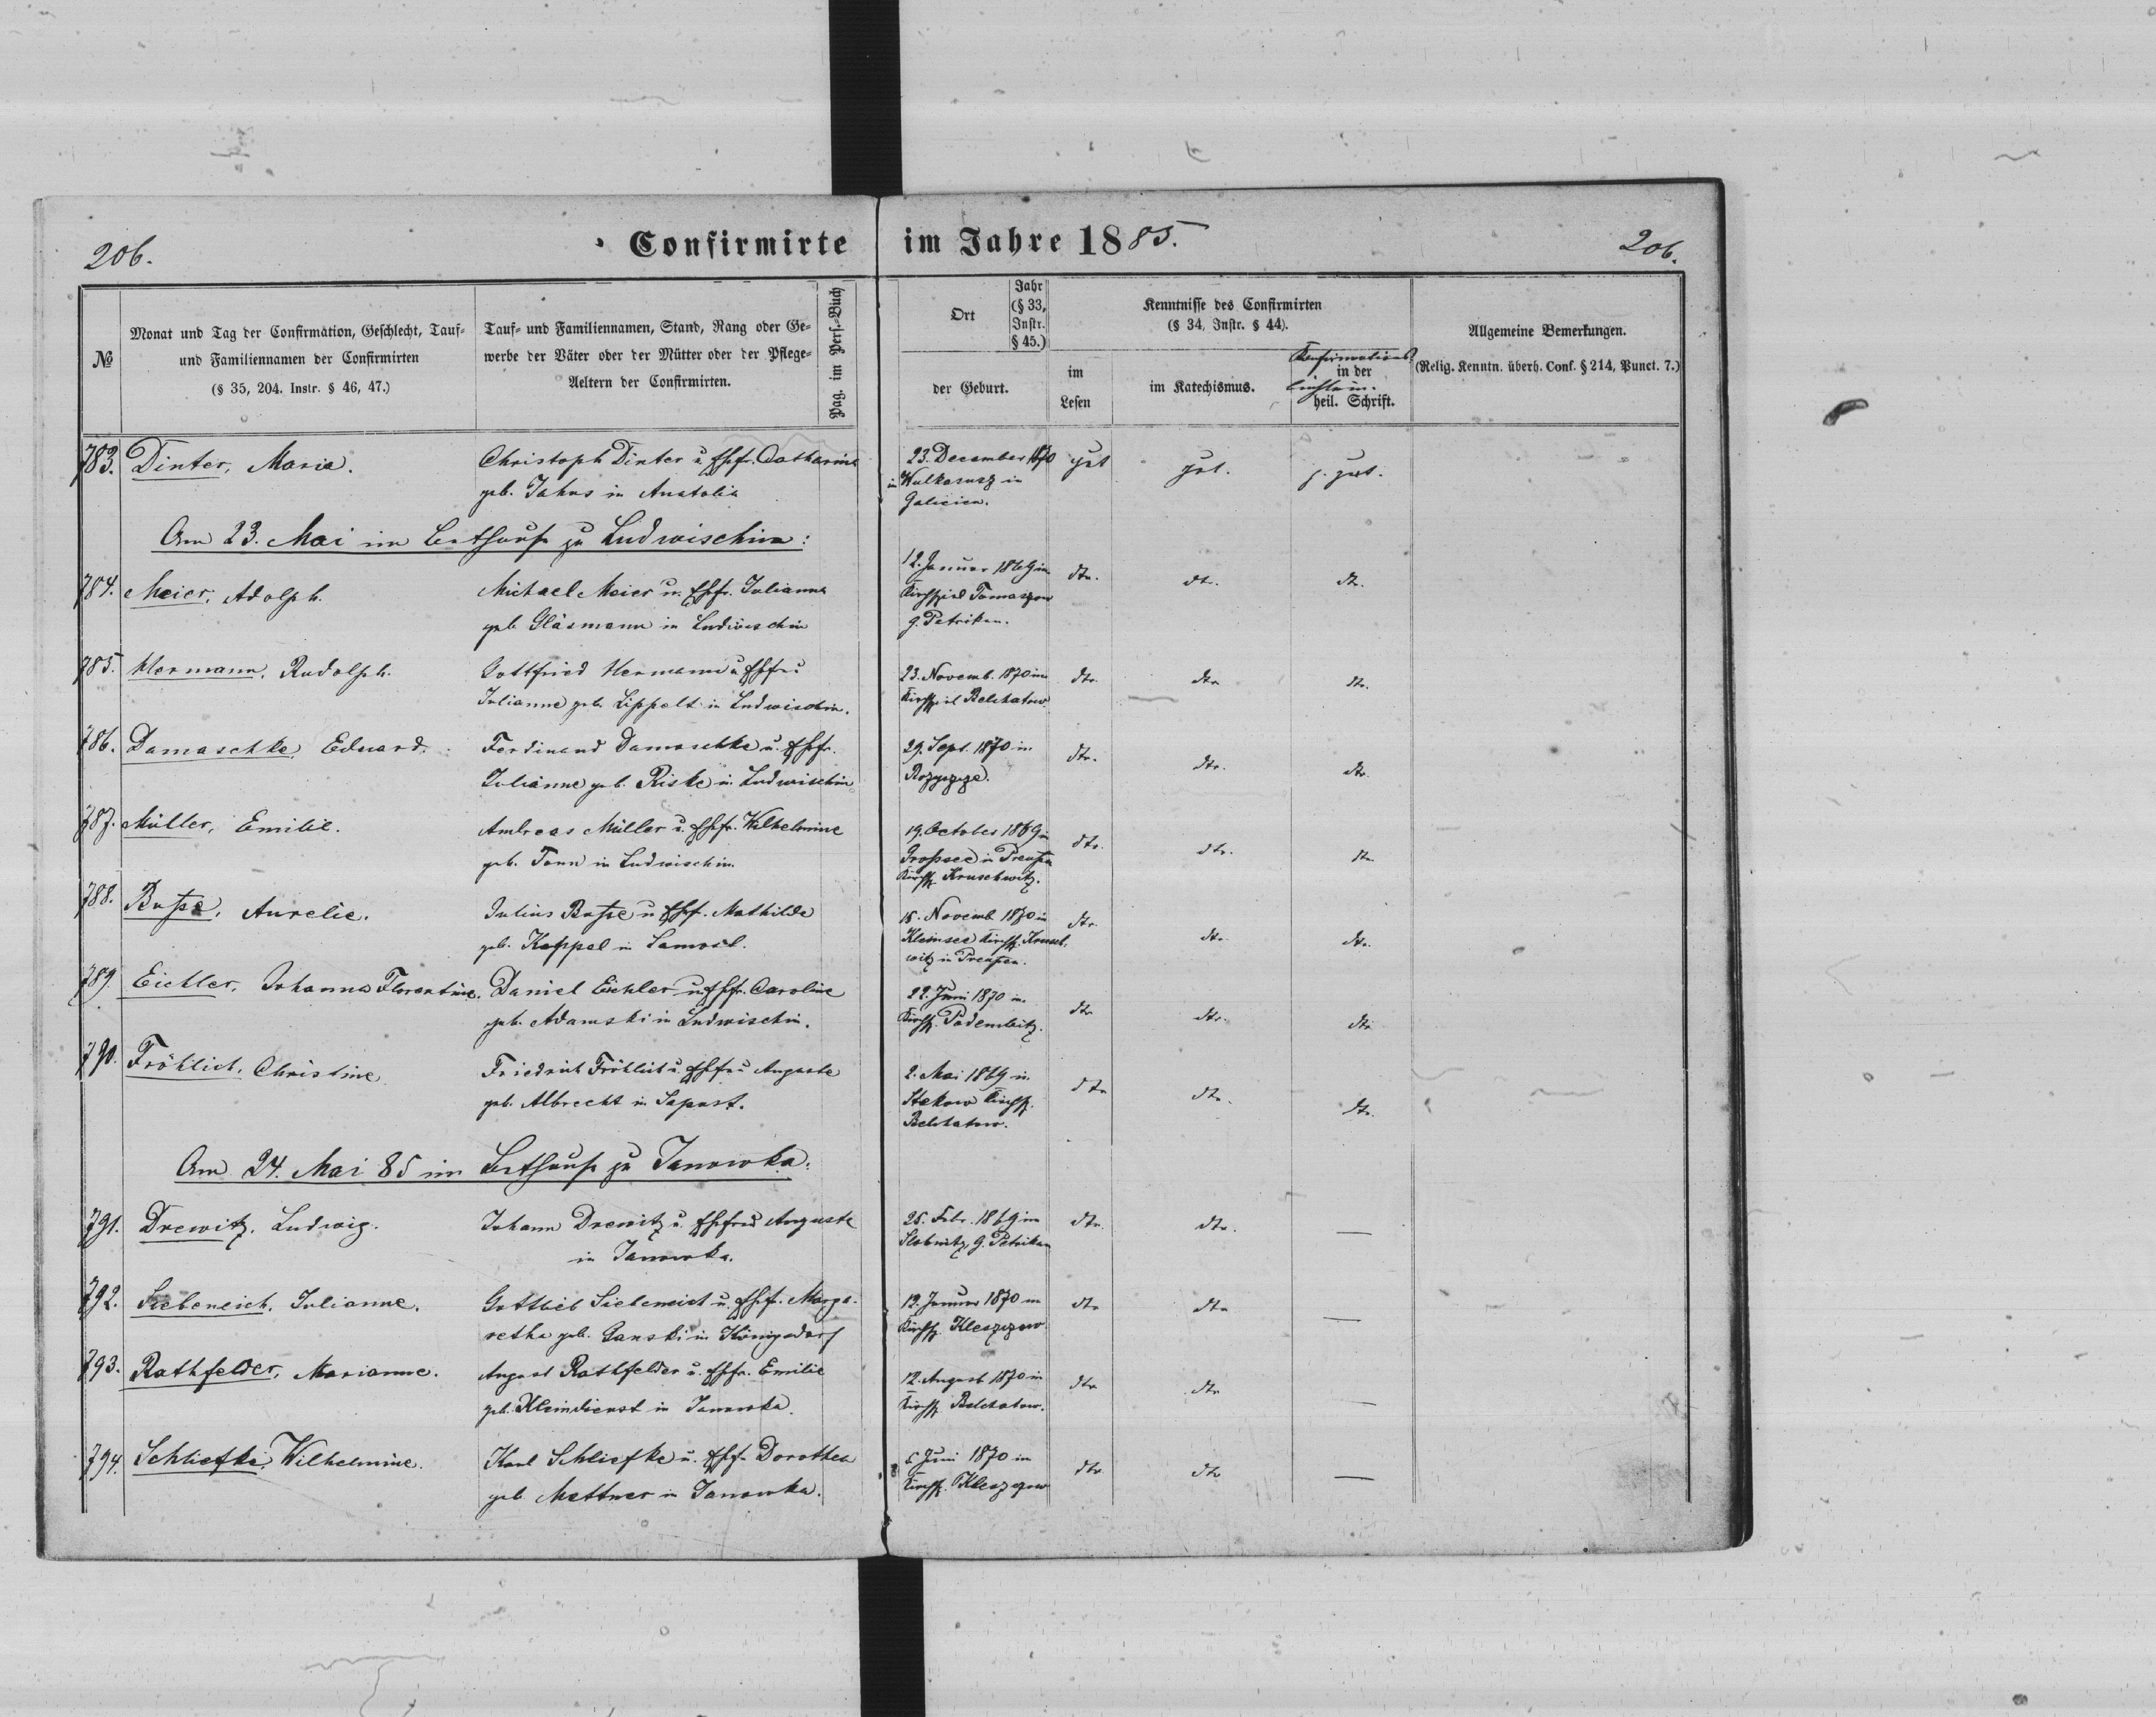 206.
Confirmirte im Jahre 1885.
206.
№
Monat und Tag der Confirmation, Geschlecht, Tauf-
und Familiennamen der Confirmirten
(§ 35, 204. Instr. § 46, 47.)
Tauf- und Familiennamen, Stand, Rang oder Ge-
werbe der Väter oder der Mütter oder der Pflege-
Aeltern der Confirmirten.
Pag. im Pers.-Buch
Ort
Jahr
(§ 33,
Instr.
§ 45.)
der Geburt.
Kenntnisse des Confirmirten
(§ 34, Instr. § 44).
im
Lesen
im Katechismus.
in der
heil. Schrift.
Allgemeine Bemerkungen.
(Relig. Kenntn. überh. Conf. § 214, Punct. 7.)
783. Dinter, Maria.
Christoph Dinter u. Ehefr. Catharine
geb. Jahns in Anatolia
23. December 1870
in Wulkasusz in
Galicien.
gut
gut.
s. gut.
Am 23. Mai im Bethause zu Ludwischin:
784. Meier, Adolph.
Michael Meier u. Ehefr. Julianna
geb. Gläsmann in Ludwischin
12. Januar 1869 im
Kirchspiel Tomaszow
g. Petrikau.
dto.
dto.
dto.
785. Hermann, Rudolph.
Gottfried Hermann u. Ehefrau
Julianne geb. Lippelt in Ludwischin.
23. Novemb. 1870 im
Kirchspiel Belchatow
dto.
dto
dto.
786. Damaschke, Eduard.
Ferdinand Damaschke u. Ehefr.
Julianne geb. Riske in Ludwischin
29. Sept. 1870 in
Rozyszcze.
dto.
dto.
dto.
787. Müller, Emilie.
Andreas Müller u. Ehefr. Wilhelmine
geb. Tonn in Ludwischin.
19. October 1869 in
Grossee in Preußen
Kirchsp. Kruschwitz.
dto.
dto.
dto
788. Buße, Aurelie.
Julius Buße u. Ehefr. Mathilde
geb. Keppel in Samosd.
18. Novemb. 1870 in
Kleinsee Kirchsp. Krusch-
witz in Preußen.
dto.
dto.
dto.
789. Eichler, Johanna Florentine.
Daniel Eichler u. Ehefr. Caroline
geb. Adamski in Ludwischin.
22. Juni 1870 in
Kirchsp. Podembitz.
dto
dto.
dto
790. Fröhlich, Christine
Friedrich Fröhlich u. Ehefrau Auguste
geb. Albrecht in Sapust.
2. Mai 1869 in
Stekow Kirchsp.
Belchatow.
dto
dto.
dto.
Am 24. Mai 85 im Bethause zu Janowka:
791. Drewitz, Ludwig.
Johann Drewitz u. Ehefrau Auguste
in Janowka.
25. Febr. 1869 in
Slobnitz, g. Petrikau
dto.
dto.
—
792. Siebeneich, Julianne.
Gottlieb Siebeneich u. Ehefr. Marga-
retha geb. Ganski in Königsdorf
12. Januar 1870 in
Kirchsp. Kleszczow.
dto
dto
—
793. Rathfelder, Marianne.
August Rathfelder u. Ehefr. Emilie
geb. Kleindienst in Janowka.
12. August 1870 in
Kirchsp. Belchatow.
dto
dto
—
794. Schliefke, Wilhelmine.
Karl Schliefke u. Ehefr. Dorothea
geb. Mettner in Janowka.
6. Juni 1870 in
Kirchsp. Kleszczow
dto
dto
—